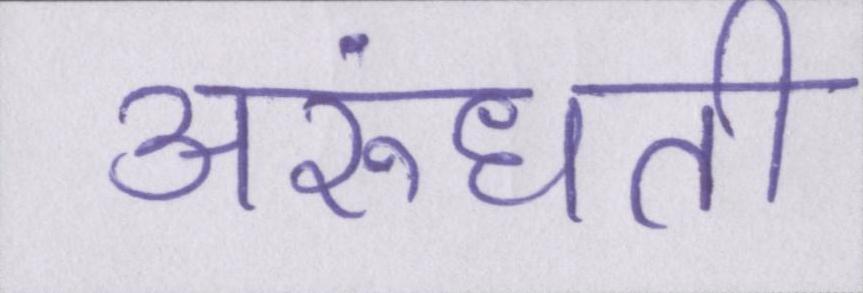 अरुंधती